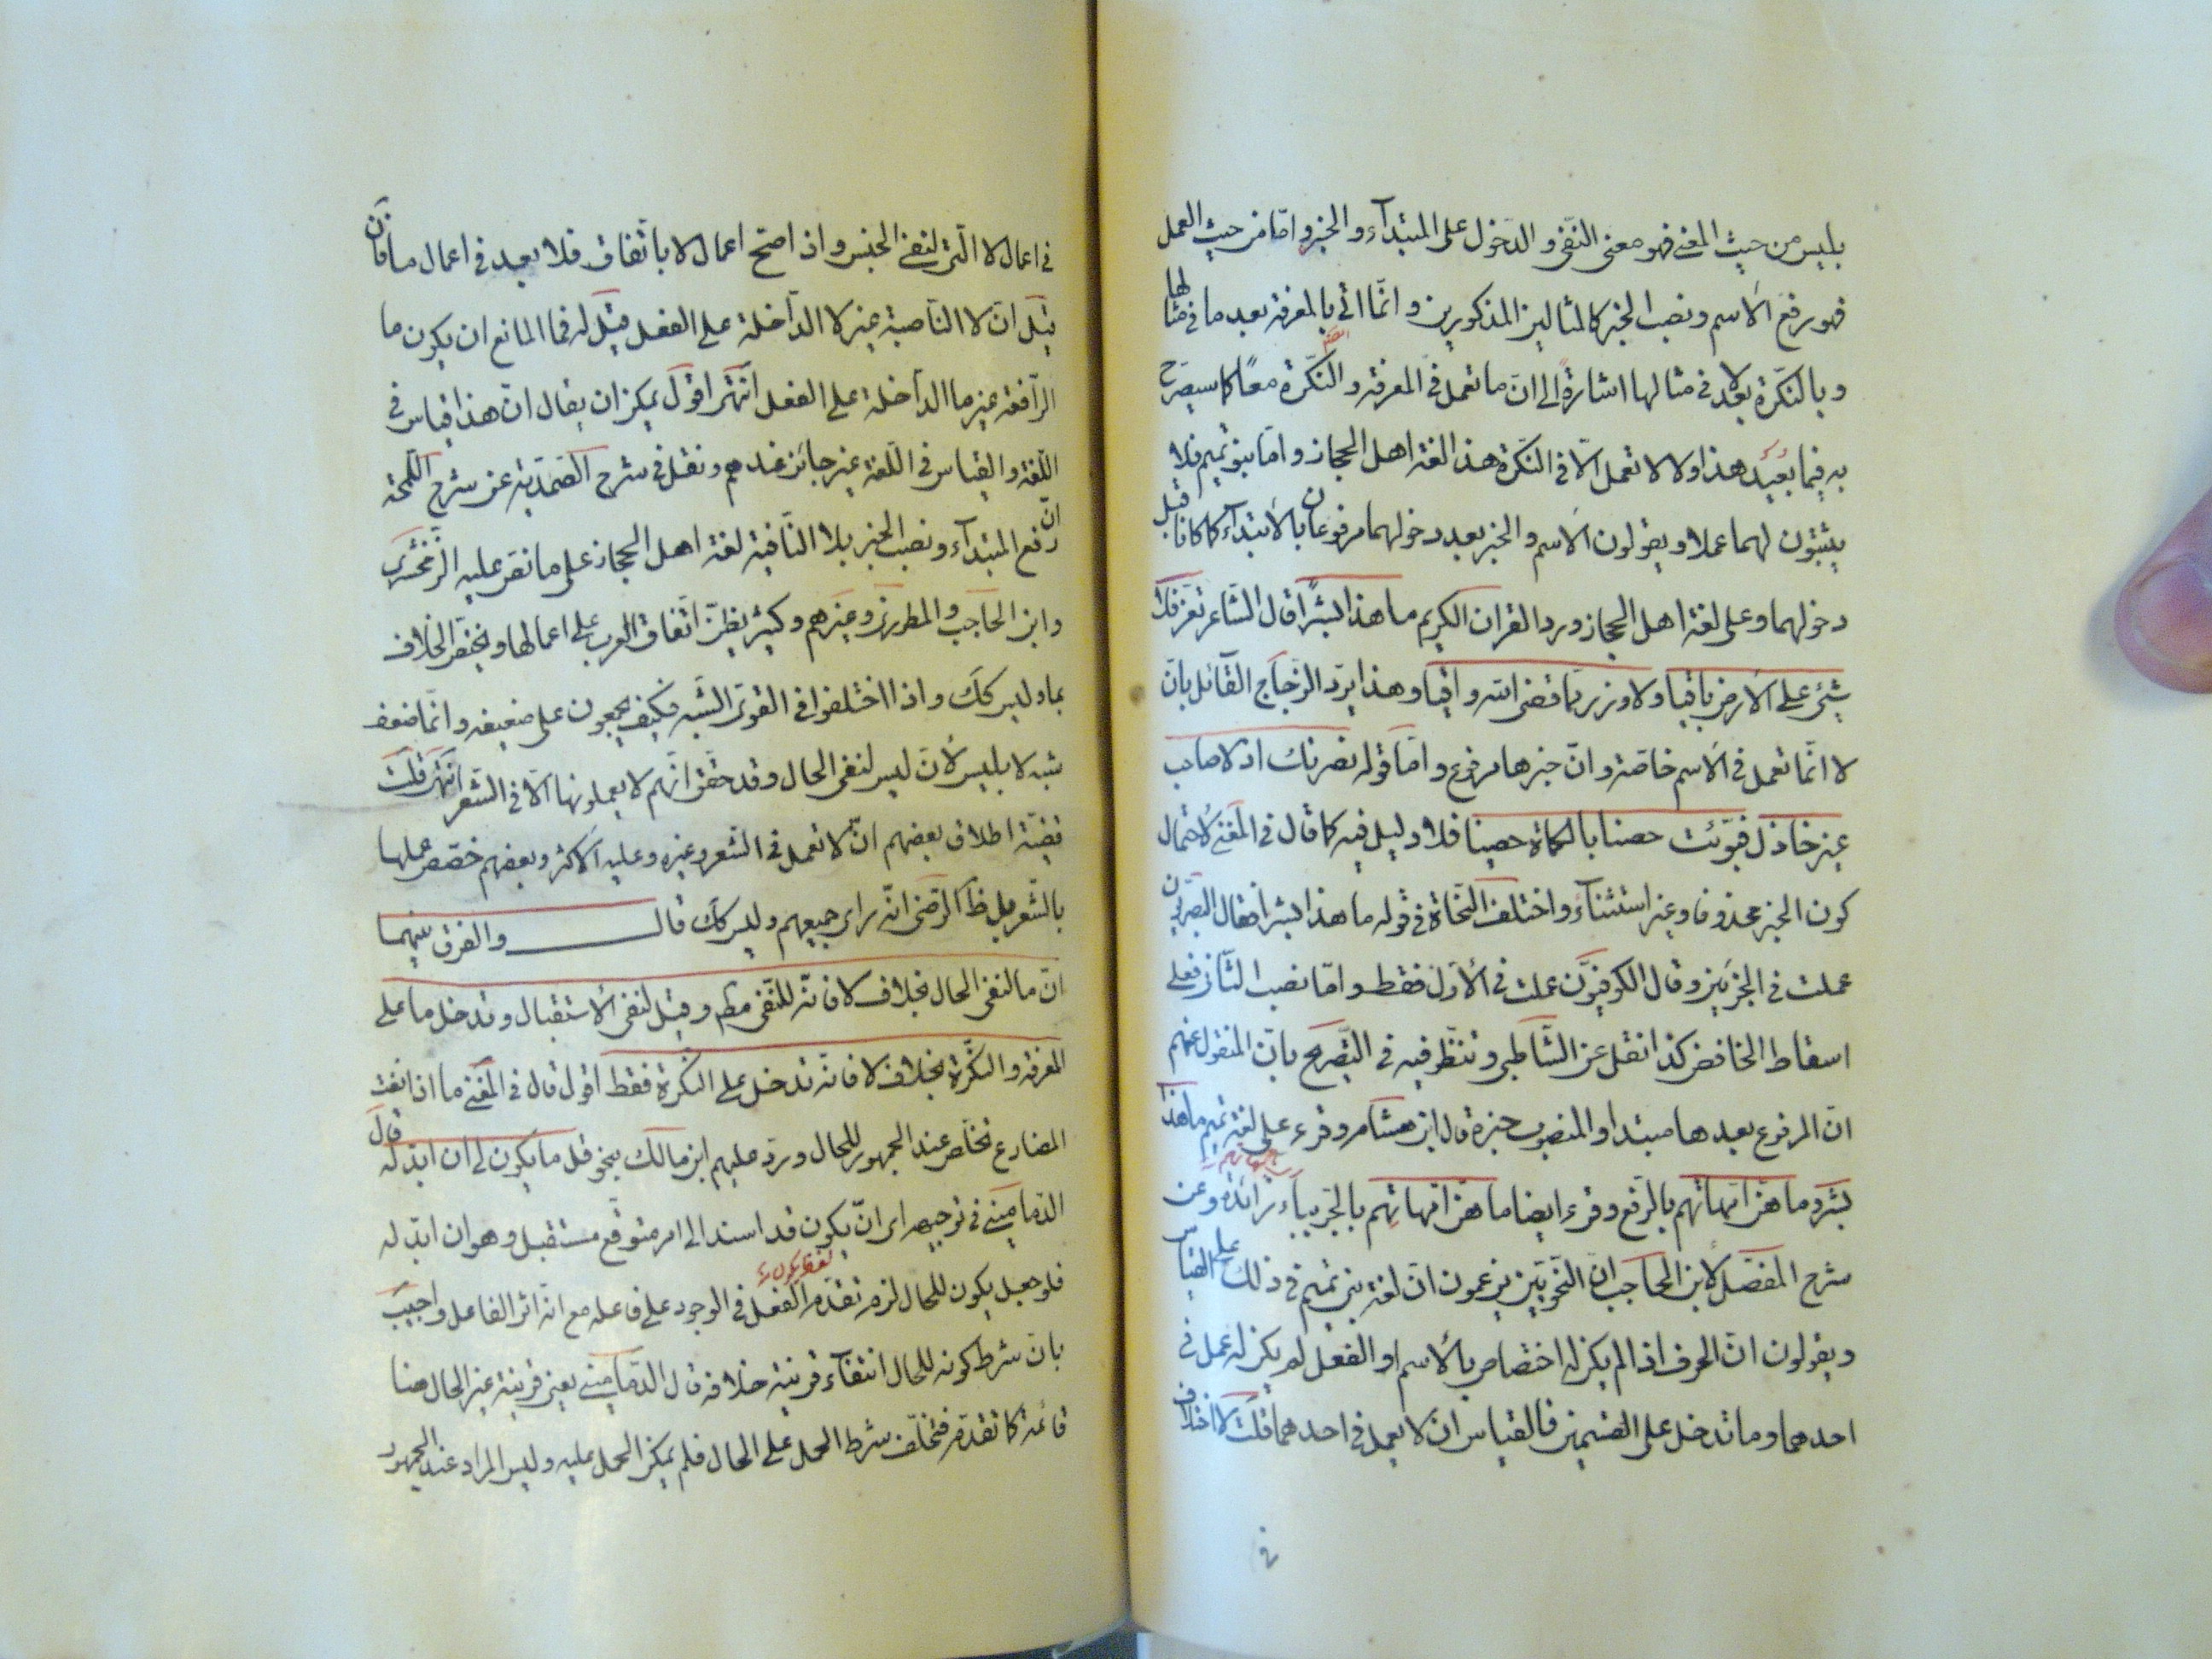 بليس من حيث المعنى فهو معنى النّفى و الدّخول على المبتدآء و الخبر و امّا من حيث العمل
فهو رفع الاسم و نصب الخبر كالمثالين المذكورين و انّما اتى بالمعرفة بعد ما فى مثالها
و بالنّكرة بعد لا فى مثالها اشارةً الى انّ ما تعمل فى المعرفة و النّكرة معًا كما سيصرّح
به فيما بعيد هذا و لا لا تعمل الّا فى النّكرة هذا لغة اهل الحجاز و امّا بنو تميم فلا
يثبتون لهما عملا و يقولون الاسم و الخبر بعد دخولهما مرفوعان بالابتدآء كما كانا قبل
دخولهما و على لغة اهل الحجاز ورد القران الكريم ما هذا بشرًا قال الشّاعر تعزّ فلا
شئ على الارض باقيا و لا وزر ممّا قضى الله واقيا و هذا يردّ الزّجاج القآئل بانّ
لا انّما تعمل فى الاسم خاصّة و انّ خبرها مرفوع و امّا قوله نصرتك اذ لا صاحب
غير خاذل فبوّئت حصنا بالكماة حصينا فلا دليل فيه كما قال فى المغنى لاحتمال
كون الخبر محذوفا و غير استثنآء و اختلف النّحاة فى قوله ما هذا بشرا فقال البصريّون
عملت فى الجزئين و قال الكوفيّون عملت فى الاوّل فقط و امّا نصب الثّانى فعلى
اسقاط الخافض كذا نقل عن الشّاطبى و تنظّر فيه فى التّصريح بانّ المنقول عنهم
انّ المرفوع بعدها مبتدا و المنصوب خبره قال ابن هشام و قرء على لغة تميم ما هذا
بشر و ما هنّ امّهاتهم بالرّفع و قرء ايضا ما هنّ امّهاتهم بالجرّ بباء زائدة و عن
شرح المفصّل لابن الحاجب انّ النّحويّين يزعمون انّ لغة بنى تميم فى ذلك على القياس
و يقولون انّ الحرف اذا لم يكن له اختصاص بالاسم او الفعل لم يكن له عمل فى
احدهما و ما تدخل على القسمين فالقياس ان لا يعمل فى احدهما قلت لا خلاف
فى
فى اعمال لا الّتى لنفى الجنس و اذا صحّ اعمال لا باتّفاق فلا بعد فى اعمال ما فان
قيل انّ لا النّاصبة غير لا الدّاخلة على الفعل قيل له فما المانع ان يكون ما
الرّافعة غير ما الدّاخلة على الفعل انتهى اقول يمكن ان يقال انّ هذا قياس فى
اللّغة و القياس فى اللّغة غير جائز عندهم و نقل فى شرح الصّمديّة عن شرح اللّمحة
انّ رفع المبتدآء و نصب الخبر بلا النّافية لغة اهل الحجاز على ما نصّ عليه الزّمخشرى
و ابن الحاجب و المطرزى و غيرهم و كثير يظنّ اتّفاق العرب على اعمالها و يخصّ الخلاف
بما و ليس كك و اذا اختلفوا فى القوىّ الشّبه فكيف يجمعون على ضعيفه و انّما ضعف
شبه لا بليس لانّ ليس لنفى الحال و قد حقّق انّهم لا يعملونها الّا فى الشّعر انتهى قلت
قضيّة اطلاق بعضهم انّ لا تعمل فى الشّعر و غيره و عليه الاكثر و بعضهم خصّص عملها
بالشّعر بل ظ الرّضى انّه راى جميعهم و ليس كك قال و الفرق بينهما
انّ ما لنفى الحال بخلاف لا فانّه للنّفى مطم و قيل لنفى الاستقبال و تدخل ما على
المعرفة و النّكرة بخلاف لا فانّه تدخل على النّكرة فقط اقول قال فى المغنى ما اذا نفت
المضارع تخلّص عند الجمهور للحال و ردّ عليهم ابن مالك بنحو قل ما يكون لى ان ابدّله قال
الدّمامينى فى توجيهه اى انّ يكون قد اسند الى امر متوقّع مستقبل و هو ان ابدّله
فلو جعل يكون للحال لزم تقدّم الفعل فى الوجود على فاعله مع انّه اثر الفاعل و اجيب
بانّ شرط كونه للحال انتفآء قرينة خلافه قال الدّمامينى يعنى قرينة غير الحال هنا
قائمة كما تقدّم فتخلّف شرط الحمل على الحال فلم يمكن الحمل عليه و ليس المراد عند الجمهور